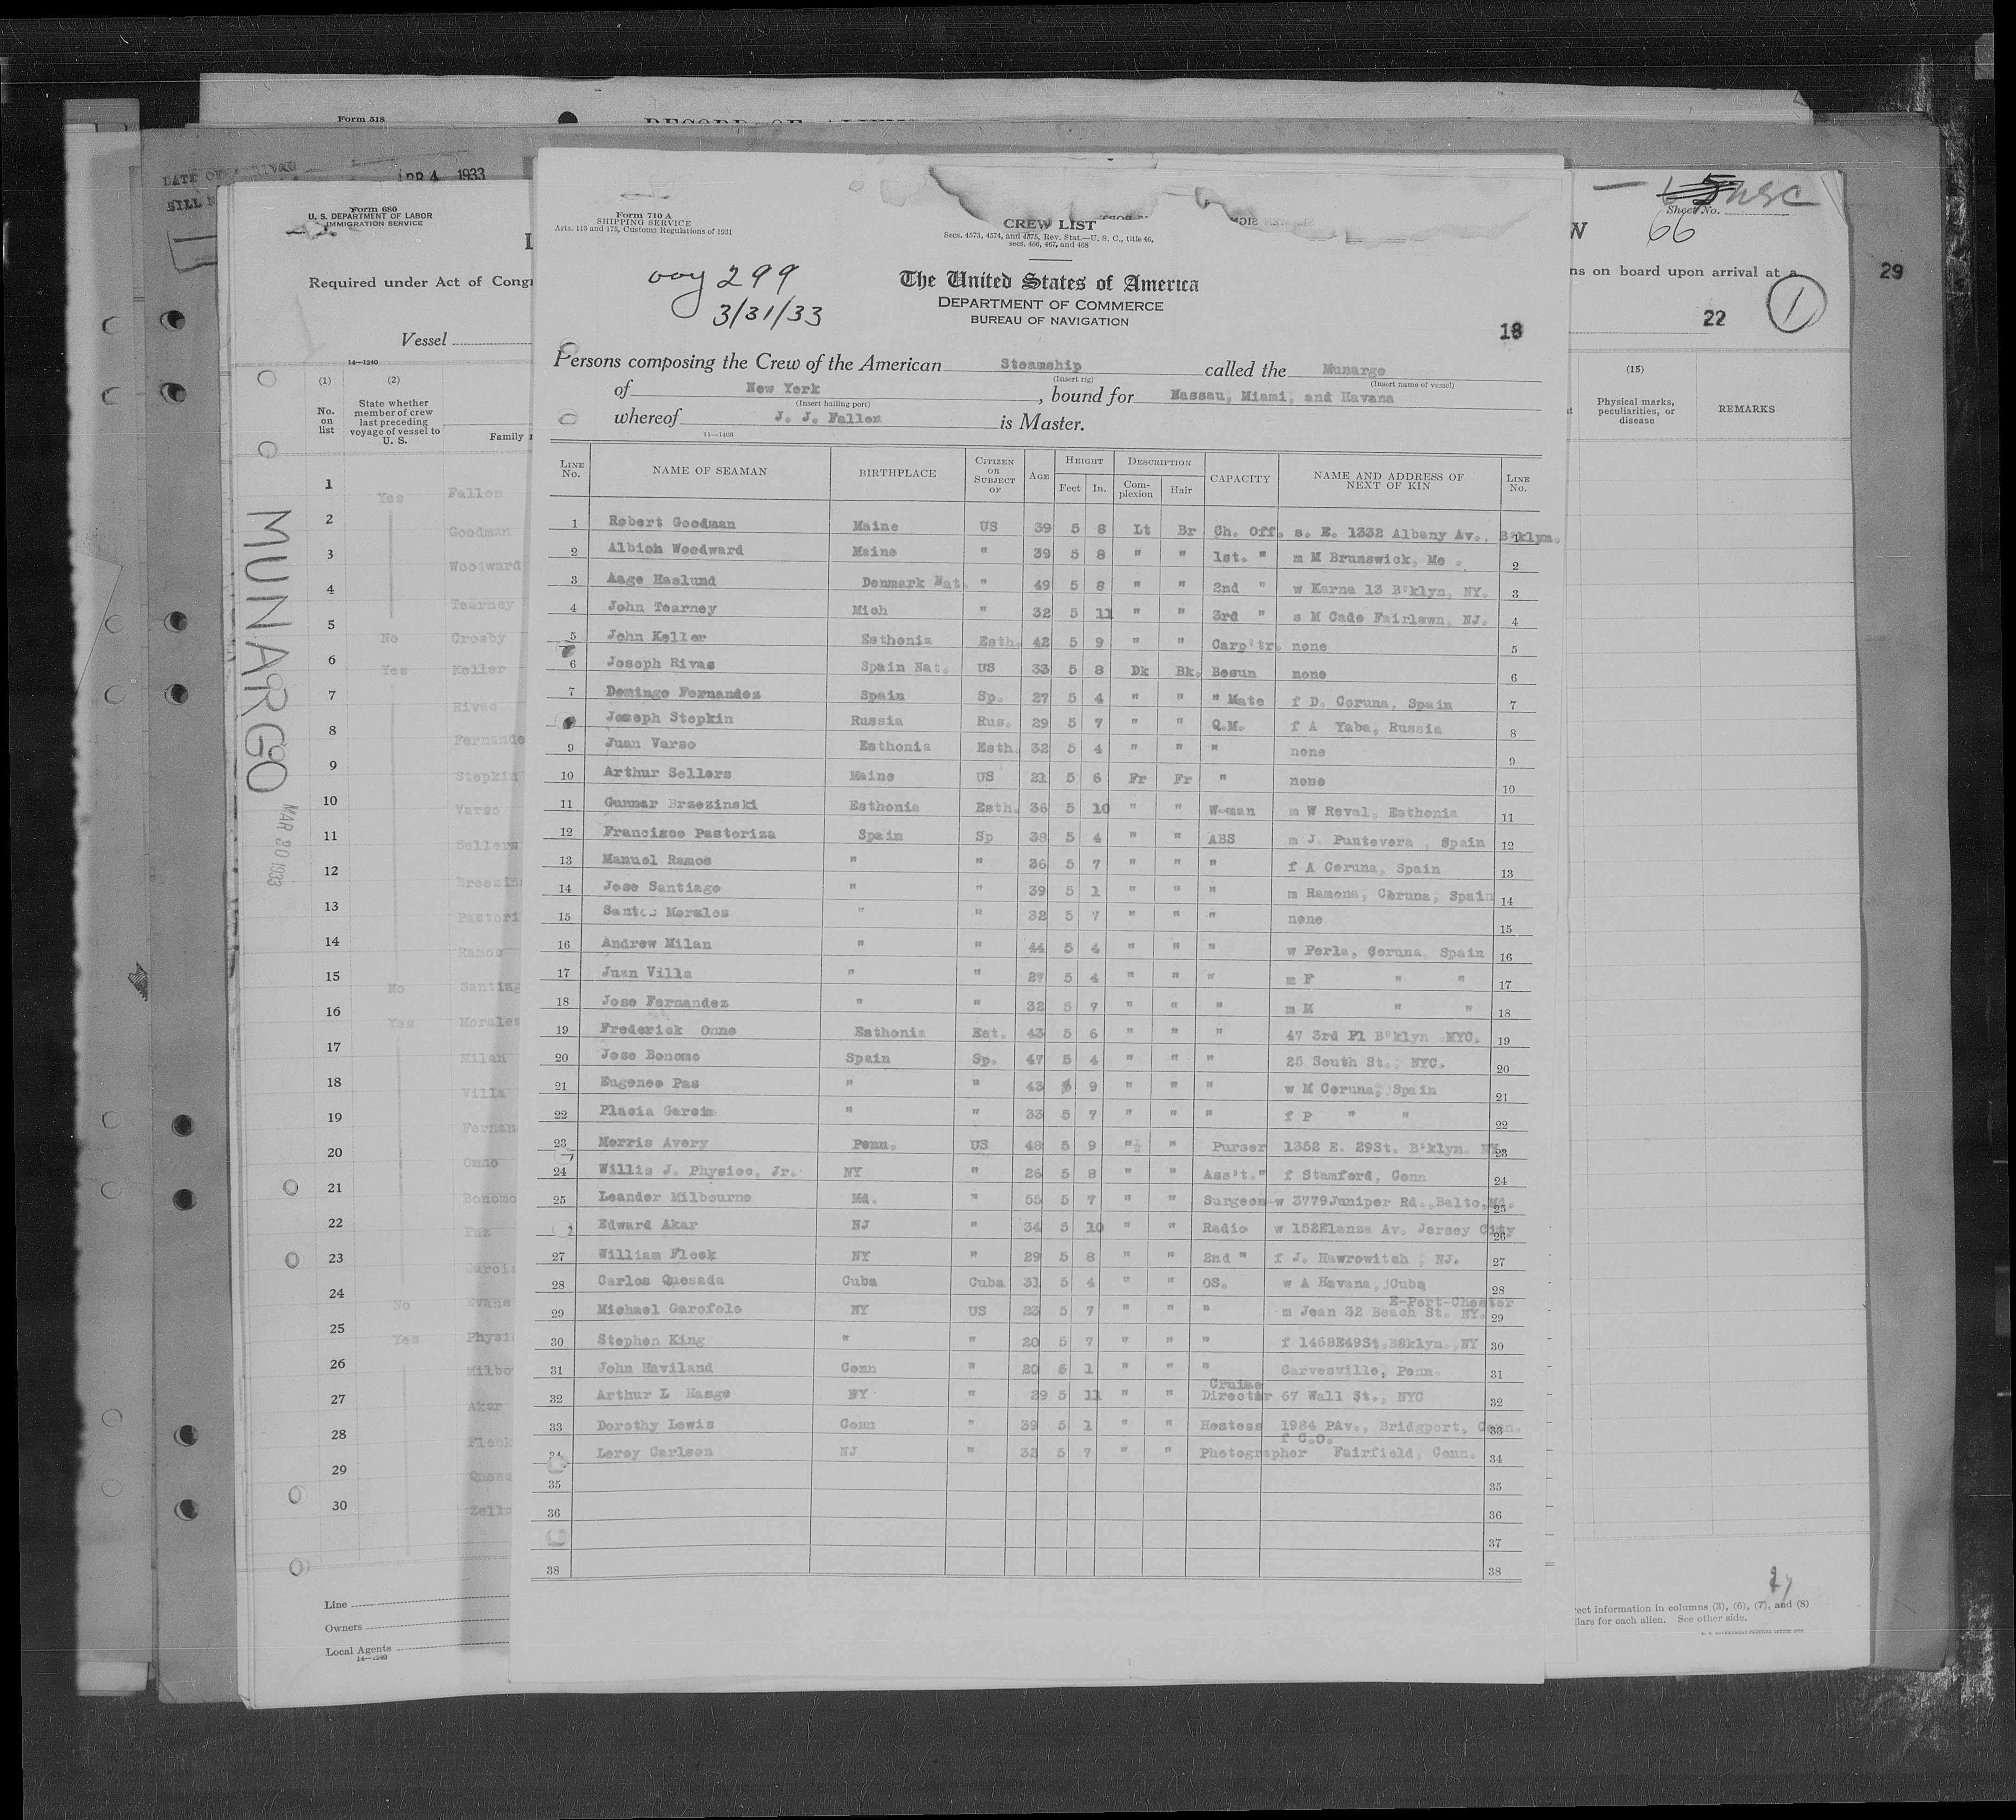 Form 518
RECORD OF ALIENS
DATE OF ARRIVAL
APR 4 1933
Form 680
U. S. DEPARTMENT OF LABOR
IMMIGRATION SERVICE
Required under Act of Cong
Vessel
14—1240
(1)
No. on list
(2)
State whether member of crew last preceding voyage of vessel to U. S.
Family
1 Yes Fallon
2 Goodman
3 Woodward
4 Tearney
5 No Crosby
6 Yes Keller
7 Rivas
8 Fernande
9 Stepkin
10 Varso
11 Sellers
12
13 Pastori
14 Ramos
15 No Santiag
16 Yes Morales
17 Milan
18 Villa
19 Fernan
20 Onno
21 Bonomo
22 Paz
23 Garci
24 No Evans
25 Yes Physi
26 Milbo
27 Akar
28 Fleek
29 Quesa
30
Line
Owners
Local Agents
14—1240
MUNARGO
MAR 20 1933
Form 710 A
SHIPPING SERVICE
Arts. 113 and 173, Customs Regulations of 1931
CREW LIST
Secs. 4573, 4574, and 4575, Rev. Stat.—U. S. C., title 46,
secs. 466, 467, and 468
voy 299
3/31/33
The United States of America
DEPARTMENT OF COMMERCE
BUREAU OF NAVIGATION
18
Persons composing the Crew of the American Steamship called the Munargo
(Insert rig) (Insert name of vessel)
of New York, bound for Nassau, Miami, and Havana
(Insert hailing port)
whereof J. J. Fallon is Master.
11—1403
LINE No. NAME OF SEAMAN BIRTHPLACE CITIZEN OR SUBJECT OF AGE HEIGHT Feet In. DESCRIPTION Complexion Hair CAPACITY NAME AND ADDRESS OF NEXT OF KIN LINE No.
1 Robert Goodman Maine US 39 5 8 Lt Br Ch. Off. s. E. 1332 Albany Av., B'klyn. 1
2 Albion Woodward Maine " 39 5 8 " " 1st. " m M Brunswick, Me . 2
3 Aage Haslund Denmark Nat. " 49 5 8 " " 2nd " w Karna 13 B'klyn, NY. 3
4 John Tearney Mich " 32 5 11 " " 3rd " s M Cade Fairlawn, NJ. 4
5 John Keller Esthonia Esth. 42 5 9 " " Carp'tr. none 5
6 Joseph Rivas Spain Nat. US 33 5 8 Dk Bk. Bosun none 6
7 Domingo Fernandez Spain Sp. 27 5 4 " " " Mate f D. Coruna, Spain 7
Joseph Stepkin Russia Rus. 29 5 7 " " Q.M. f A Yaba, Russia 8
9 Juan Varso Esthonia Esth. 32 5 4 " " " none 9
10 Arthur Sellers Maine US 21 5 6 Fr Fr " none 10
11 Gunnar Brzezinski Esthonia Esth. 36 5 10 " " W-man m W Reval, Esthonia 11
12 Francisco Pastoriza Spain Sp 38 5 4 " " ABS m J. Puntevera , Spain 12
13 Manuel Ramos " " 36 5 7 " " " f A Coruna, Spain 13
14 Jose Santiago " " 39 5 1 " " " m Ramona, Coruna, Spain 14
15 Santos Morales " " 32 5 7 " " " none 15
16 Andrew Milan " " 44 5 4 " " " w Perla, Coruna, Spain 16
17 Juan Villa " " 27 5 4 " " " m F " " 17
18 Jose Fernandez " " 32 5 7 " " " m M " " 18
19 Frederick Onno Esthonia Est. 43 5 6 " " " 47 3rd Pl B'klyn .NYC. 19
20 Jose Bonomo Spain Sp. 47 5 4 " " " 25 South St., NYC. 20
21 Eugenee Pas " " 43 5 9 " " " w M Coruna, Spain 21
22 Placia Garcia " " 33 5 7 " " " f P " " 22
23 Morris Avery Penn. US 48 5 9 " " Purser 1352 E. 29St. B'klyn. NY 23
24 Willis J. Physioc, Jr. NY " 26 5 8 " " Ass't." f Stamford, Conn 24
25 Leander Milbourne Md. " 55 5 7 " " Surgeon w 3779Juniper Rd.,Balto,Md. 25
Edward Akar NJ " 34 5 10 " " Radio w 152Elanza Av. Jersey City 26
27 William Fleek NY " 29 5 8 " " 2nd " f J. Hawrowitch , NJ. 27
28 Carlos Quesada Cuba Cuba 31 5 4 " " OS. w A Havana, Cuba 28
E-Port-Chester
29 Michael Garofolo NY US 23 5 7 " " " m Jean 32 Beach St. NY. 29
30 Stephen King " " 20 5 7 " " " f 1468E49St.B8klyn.,NY 30
31 John Haviland Conn " 20 6 1 " " " Garvesville, Penn. 31
32 Arthur L Hasge NY " 29 5 11 " " Cruise Director 67 Wall St., NYC 32
33 Dorothy Lewis Conn " 39 5 1 " " Hostess 1984 PAv., Bridgport, Conn. 33
f C.O.
34 Leroy Carlson NJ " 32 5 7 " " Photographer Fairfield, Conn. 34
35 35
36 36
37
38 38
Sheet No.
66
W
ns on board upon arrival at a
29
22
1
(15)
Physical marks, peculiarities, or disease
REMARKS
rect information in columns (3), (6), (7), and (8)
llars for each alien. See other side.